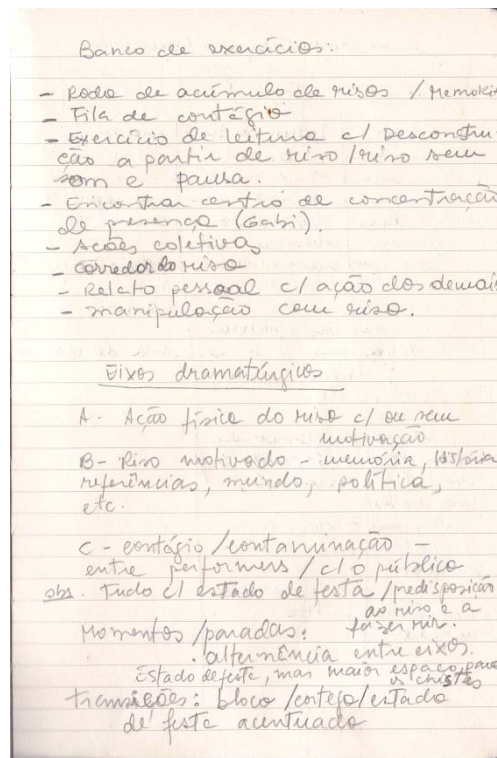 Banco de exercícios:
- Roda de acúmulo de risos / memória
- Fila de contágio
- Exercício de leitura c/ desconstru
ção a partir de riso/riso sem
som e pausa.
- Encontrar centro de concentração
de presença (Gabi).
- Ações coletivas
- corredor do riso
- Relato pessoal c/ ação dos demais
- manipulação com riso.
Eixos dramatúrgicos
A - Ação física do riso c/ ou sem
motivação
B - Riso motivado - memória, história
referências, mundo, política,
etc.
C - contágio/contaminação -
entre performers / c/ o público
obs. Tudo c/ estado de festa/predisposição
ao riso e a
fazer rir.
Momentos/paradas:
. alternância entre eixos.
Estado de festa, mas maior espaço para
os chistes
transições: bloco/cortejo/estado
de festa acentuado